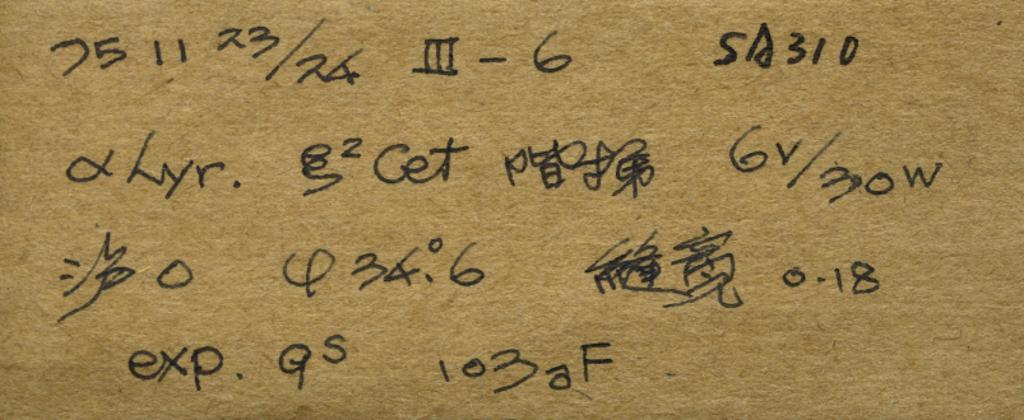 75 11 23/24 III-6 SA310
α Lyr. ξ² Cet 階梯 6V/30W
0 φ 34.°6 縫寬 0.18
exp. 9ˢ 103aF